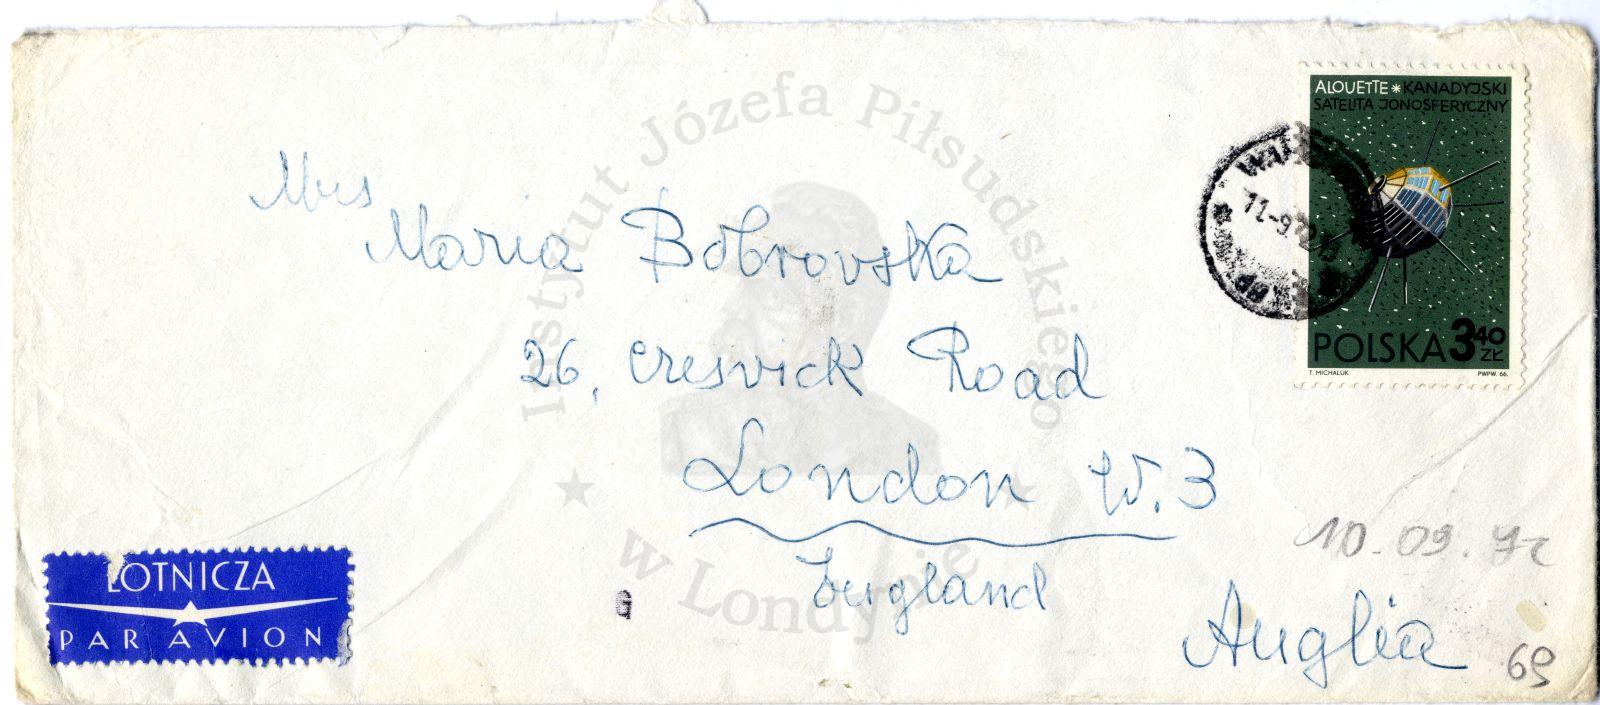 Instytut Józefa Piłsudskiego
w Londynie
ALOUETTE * KANADYJSKI
SATELITA JONOSFERYCZNY
POLSKA 3 40 ZŁ
T. MICHALUK
PWPW. 66.
11-9
Mrs
Maria Bobrovska
26, cresvick Road
London W. 3
England
Anglia
10.09.72
69
LOTNICZA
PAR AVION
G